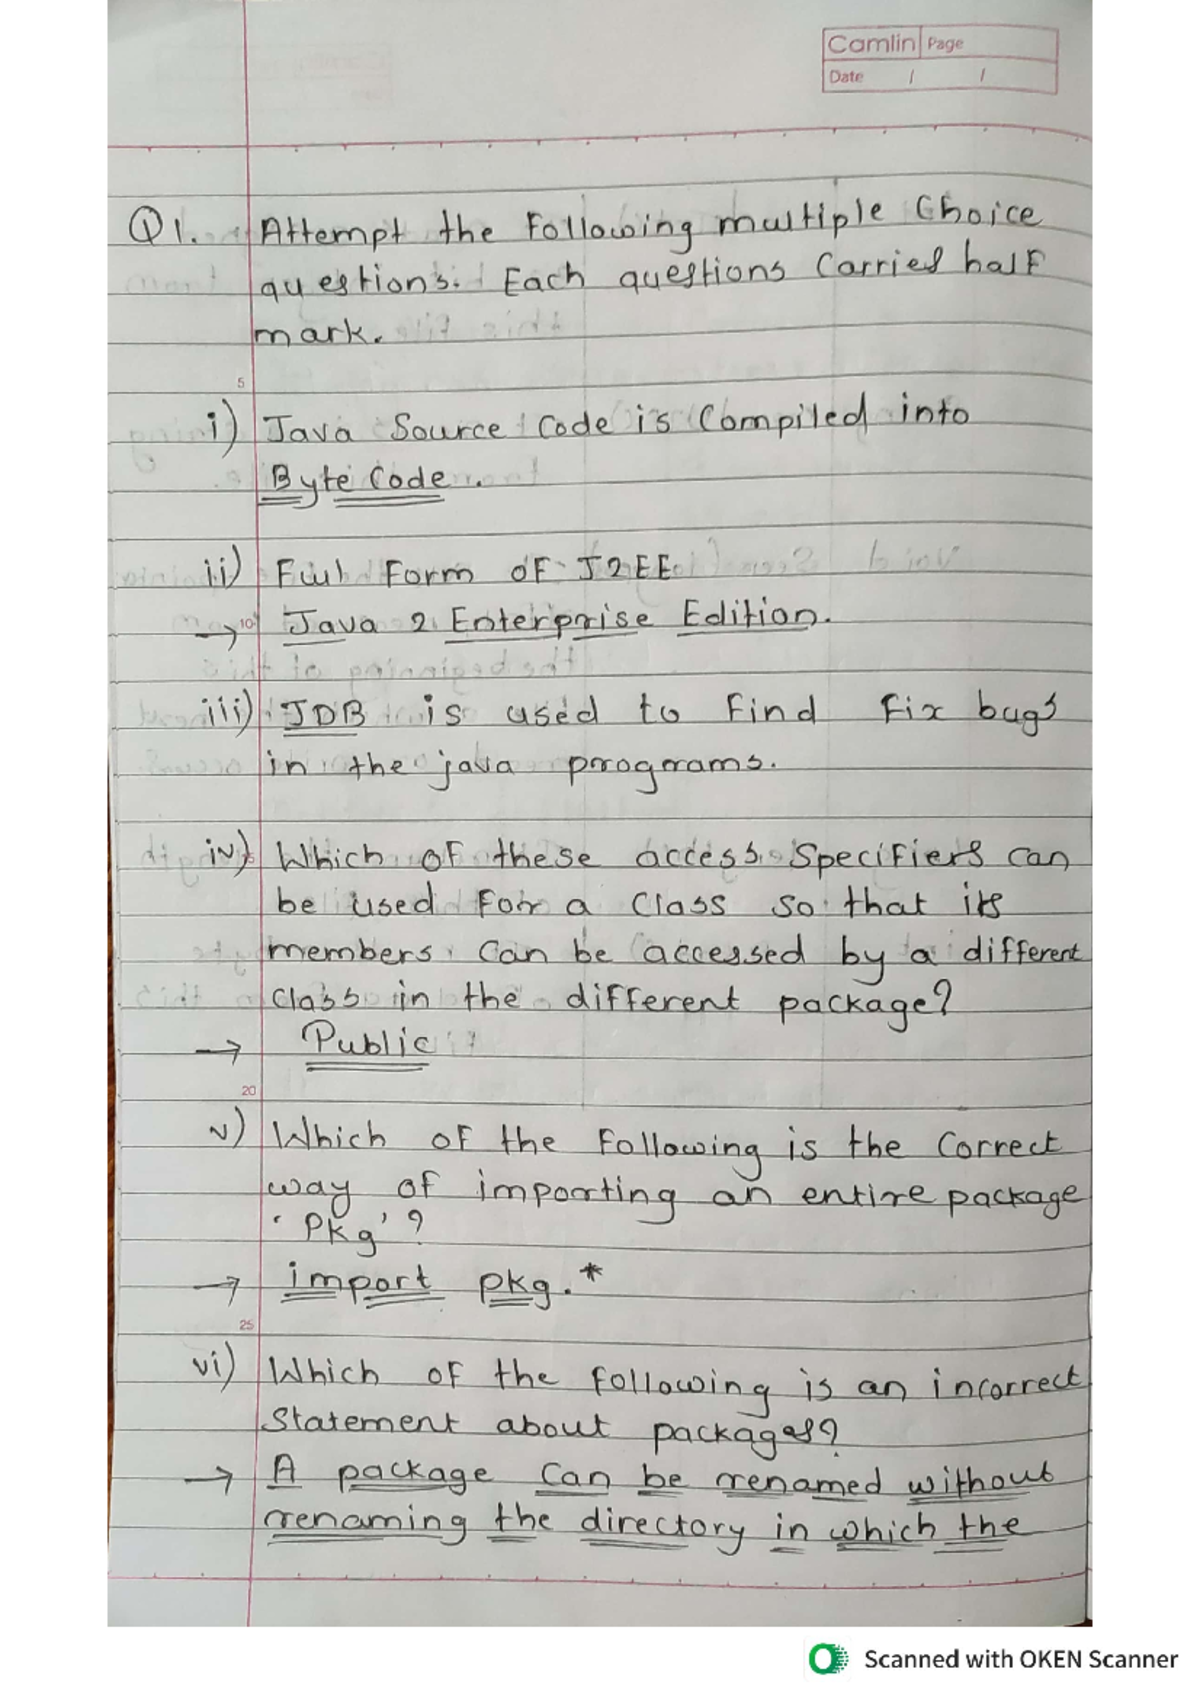 Camlin Page
Date / /
Q1. Attempt the Following multiple Choice
questions. Each questions Carries half
mark.
5
i) Java Source Code is Compiled into
Byte Code.
ii) Full Form of J2EE
10
→ Java 2 Enterprise Edition.
iii) JDB is used to Find Fix bugs
in the java programs.
iv) Which of these access Specifiers can
be used For a Class so that its
members can be accessed by a different
Class in the different package?
→ Public
20
v) Which of the Following is the Correct
way of importing an entire package
'Pkg'?
→ import pkg.*
25
vi) Which of the Following is an incorrect
Statement about packages?
→ A package Can be renamed without
renaming the directory in which the
Scanned with OKEN Scanner